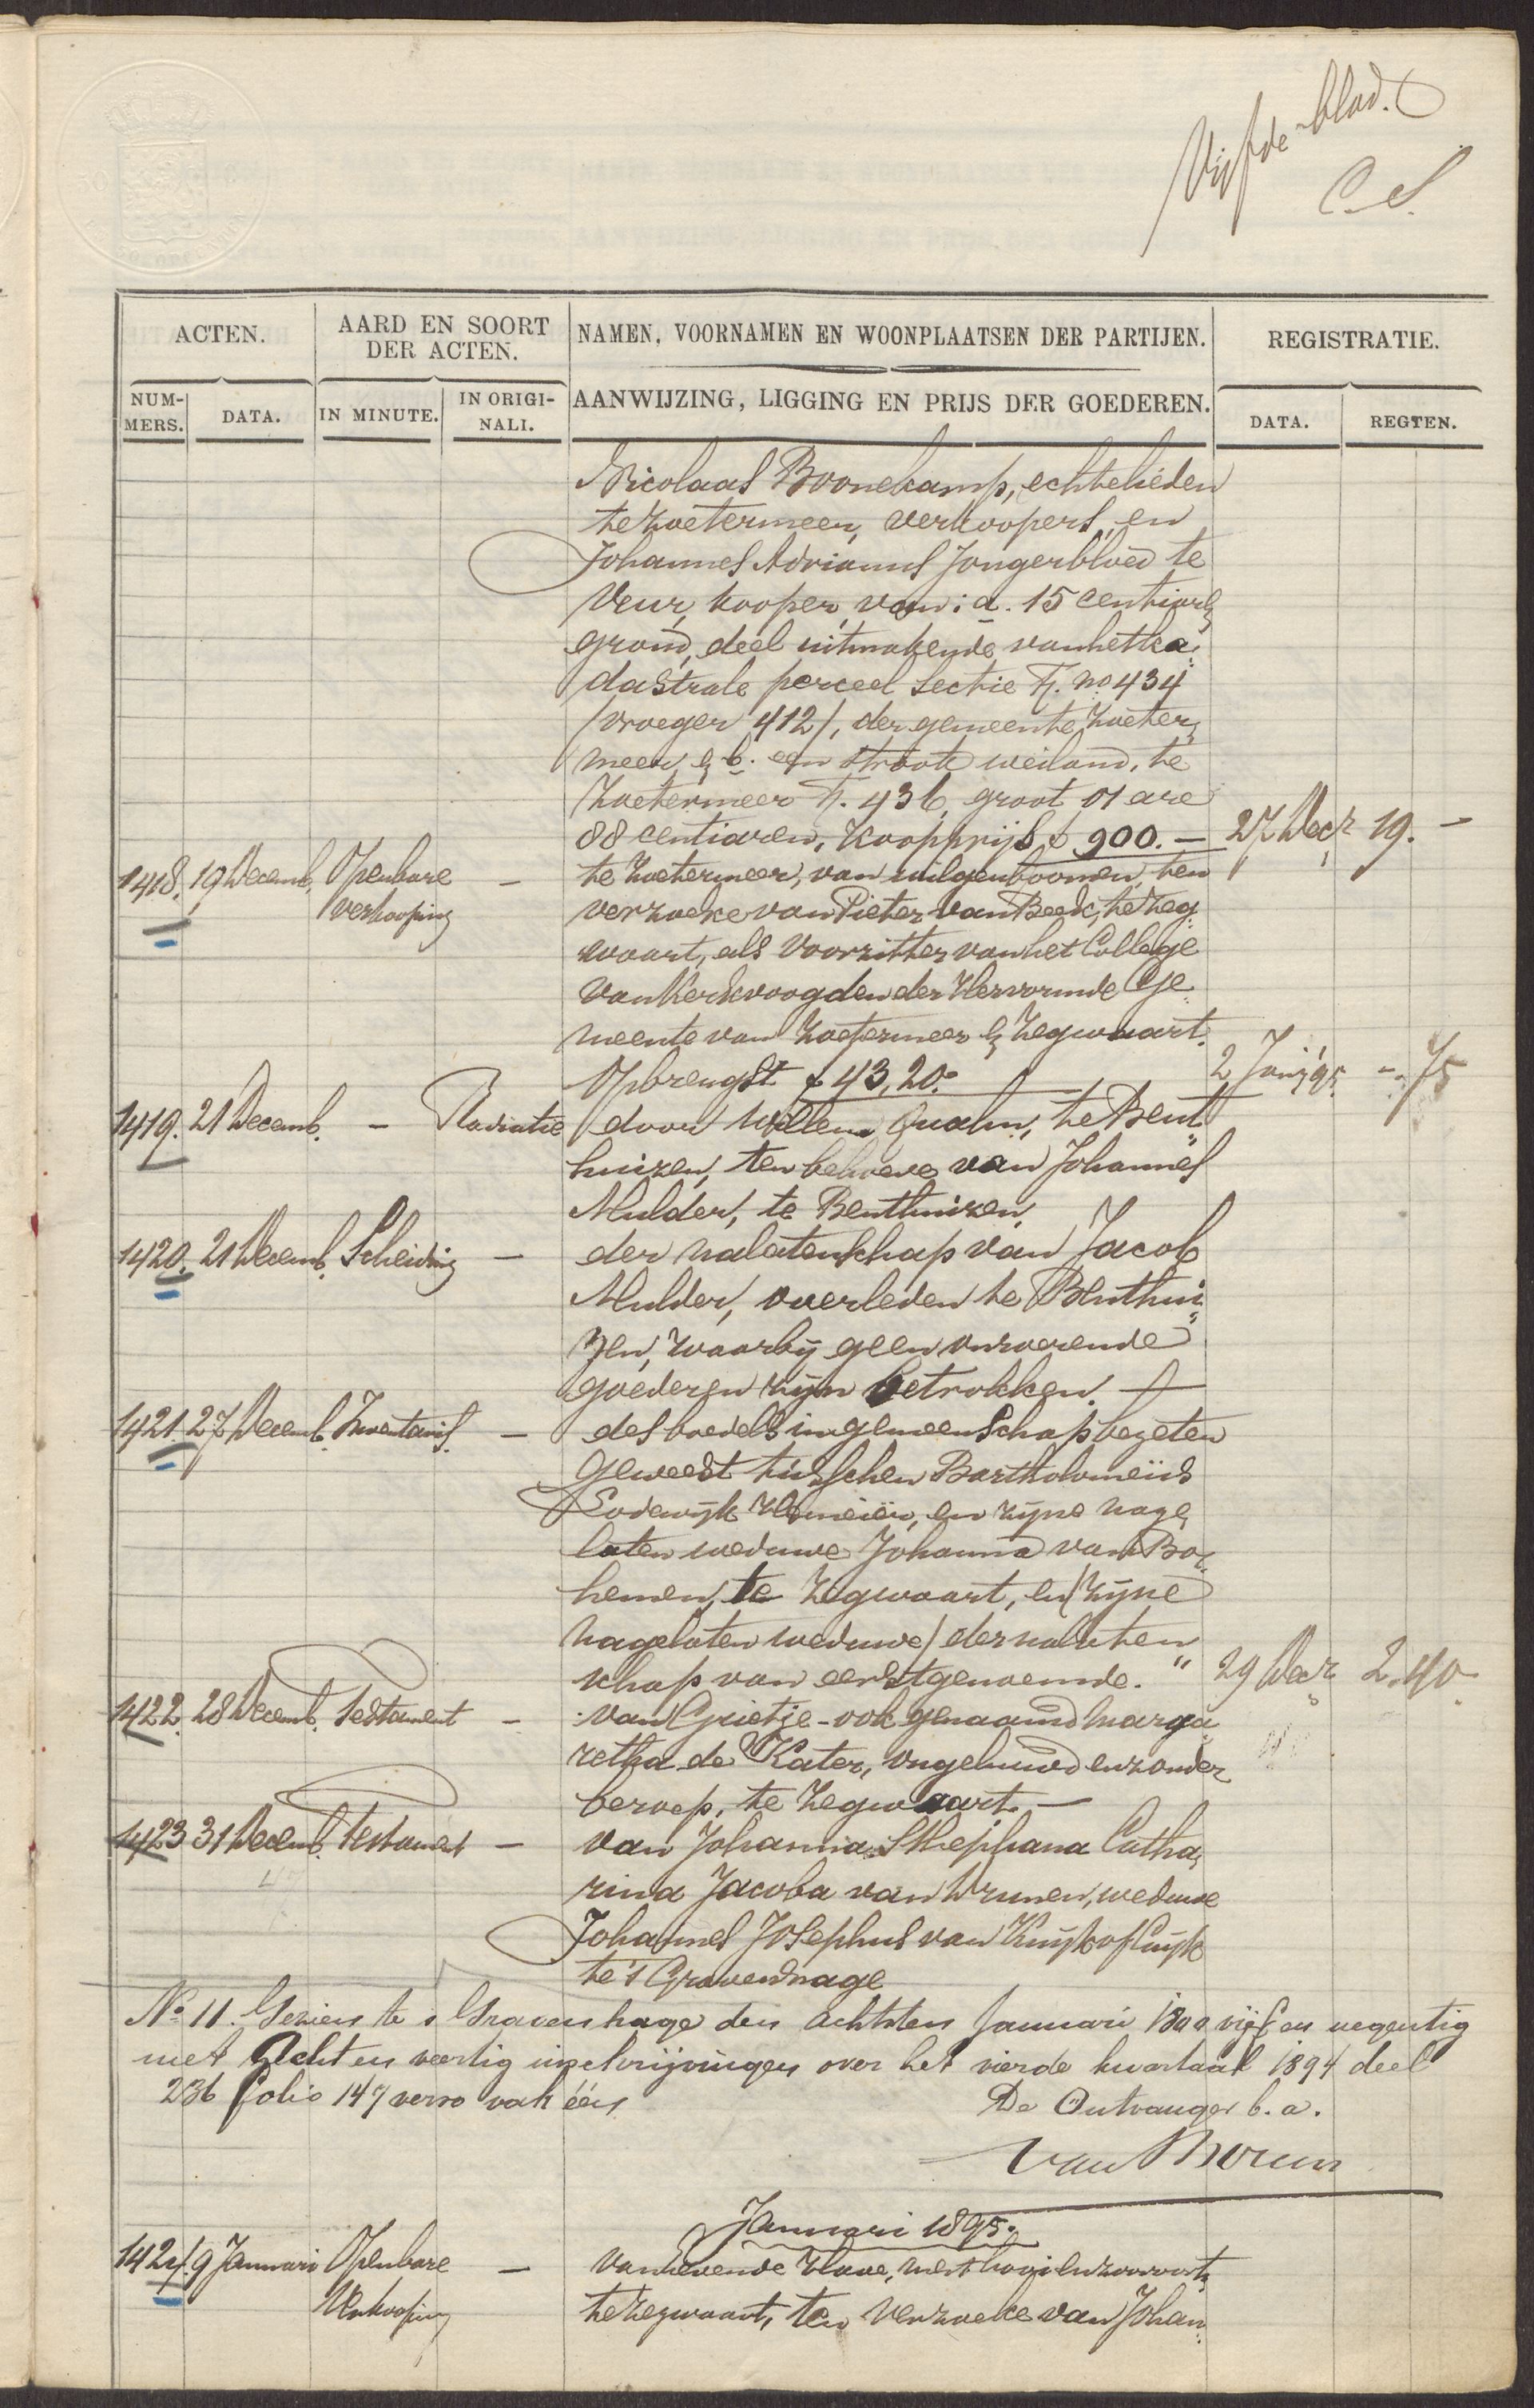 Vijfde blad.
C.S.
ACTEN.
AARD EN SOORT DER ACTEN.
NAMEN, VOORNAMEN EN WOONPLAATSEN DER PARTIJEN.
REGISTRATIE.
NUM-MERS.
DATA.
IN MINUTE.
IN ORIGI-NALI.
AANWIJZING, LIGGING EN PRIJS DER GOEDEREN.
DATA.
REGTEN.
Nicolaas Boonekamp, echtelieden
te Zoetermeer, verkoopers, en
Johannes Adrianus Jongerbloed te
Veur, kooper, van: a. 15 centiaren
grond, deel uitmakende van het ka-
dastrale perceel Sectie F. no 434
(vroeger 412), der gemeente Zoeter-
meer & b. een strook weiland, te
Zoetermeer F. 436, groot 01 are
88 centiaren, Koopprijs f 900.— 27 Decr 19.—
1418. 19 Decemb. Openbare — te Zoetermeer, van wilgenboomen, ten
verkooping verzoeke van Pieter van Beek, te Zeg-
waart, als Voorzitter van het College
van Kerkvoogden der Hervormde Ge-
meente van Zoetermeer & Zegwaart.
Opbrengst f 43,20.- 2 Janij 95. -.75
1419. 21 Decemb. — Radiatie door Willem Qualm, te Bent-
huizen, ten behoeve van Johannes
Mulder, te Benthuizen.
1420. 21 Decemb. Scheiding — der nalatenschap van Jacob
Mulder, overleden te Benthui-
zen, waarbij geen onroerende
goederen zijn betrokken.
1421. 27 Decemb. Inventaris. — des boedels in gemeenschap bezeten
geweest tusschen Bartholomeüs
Lodewijk en zijne nage-
laten weduwe Johanna van Boc-
hemen, te Zegwaart, en (zijne
nagelaten weduwe) der nalaten-
schap van eerstgenoemde. 29 Decr 2.40
1422. 28 Decemb. Testament — van Grietje - ook genaamd Marga-
retha de Kater, ongehuwd en zonder
beroep, te Zegwaart.—
1423 31 Decemb. Testament — van Johanna Sthephana Catha-
rina Jacoba van Drunen, weduwe
Johannes Josephus van Kuijk of Cuijk
te 's Gravenhage
No 11. Gezien te 's Gravenhage den achtsten Januari 1800 vijf en negentig
met Acht en veertig inschrijvingen over het vierde kwartaal 1894 deel
236 folio 147 verso vak één
De Ontvanger b.a.
Januari 1895.
1424. 9 Januari Openbare — van levende Have, mest hooi enzoovoorts,
Verkooping te Zegwaart, ten verzoeke van Johan-